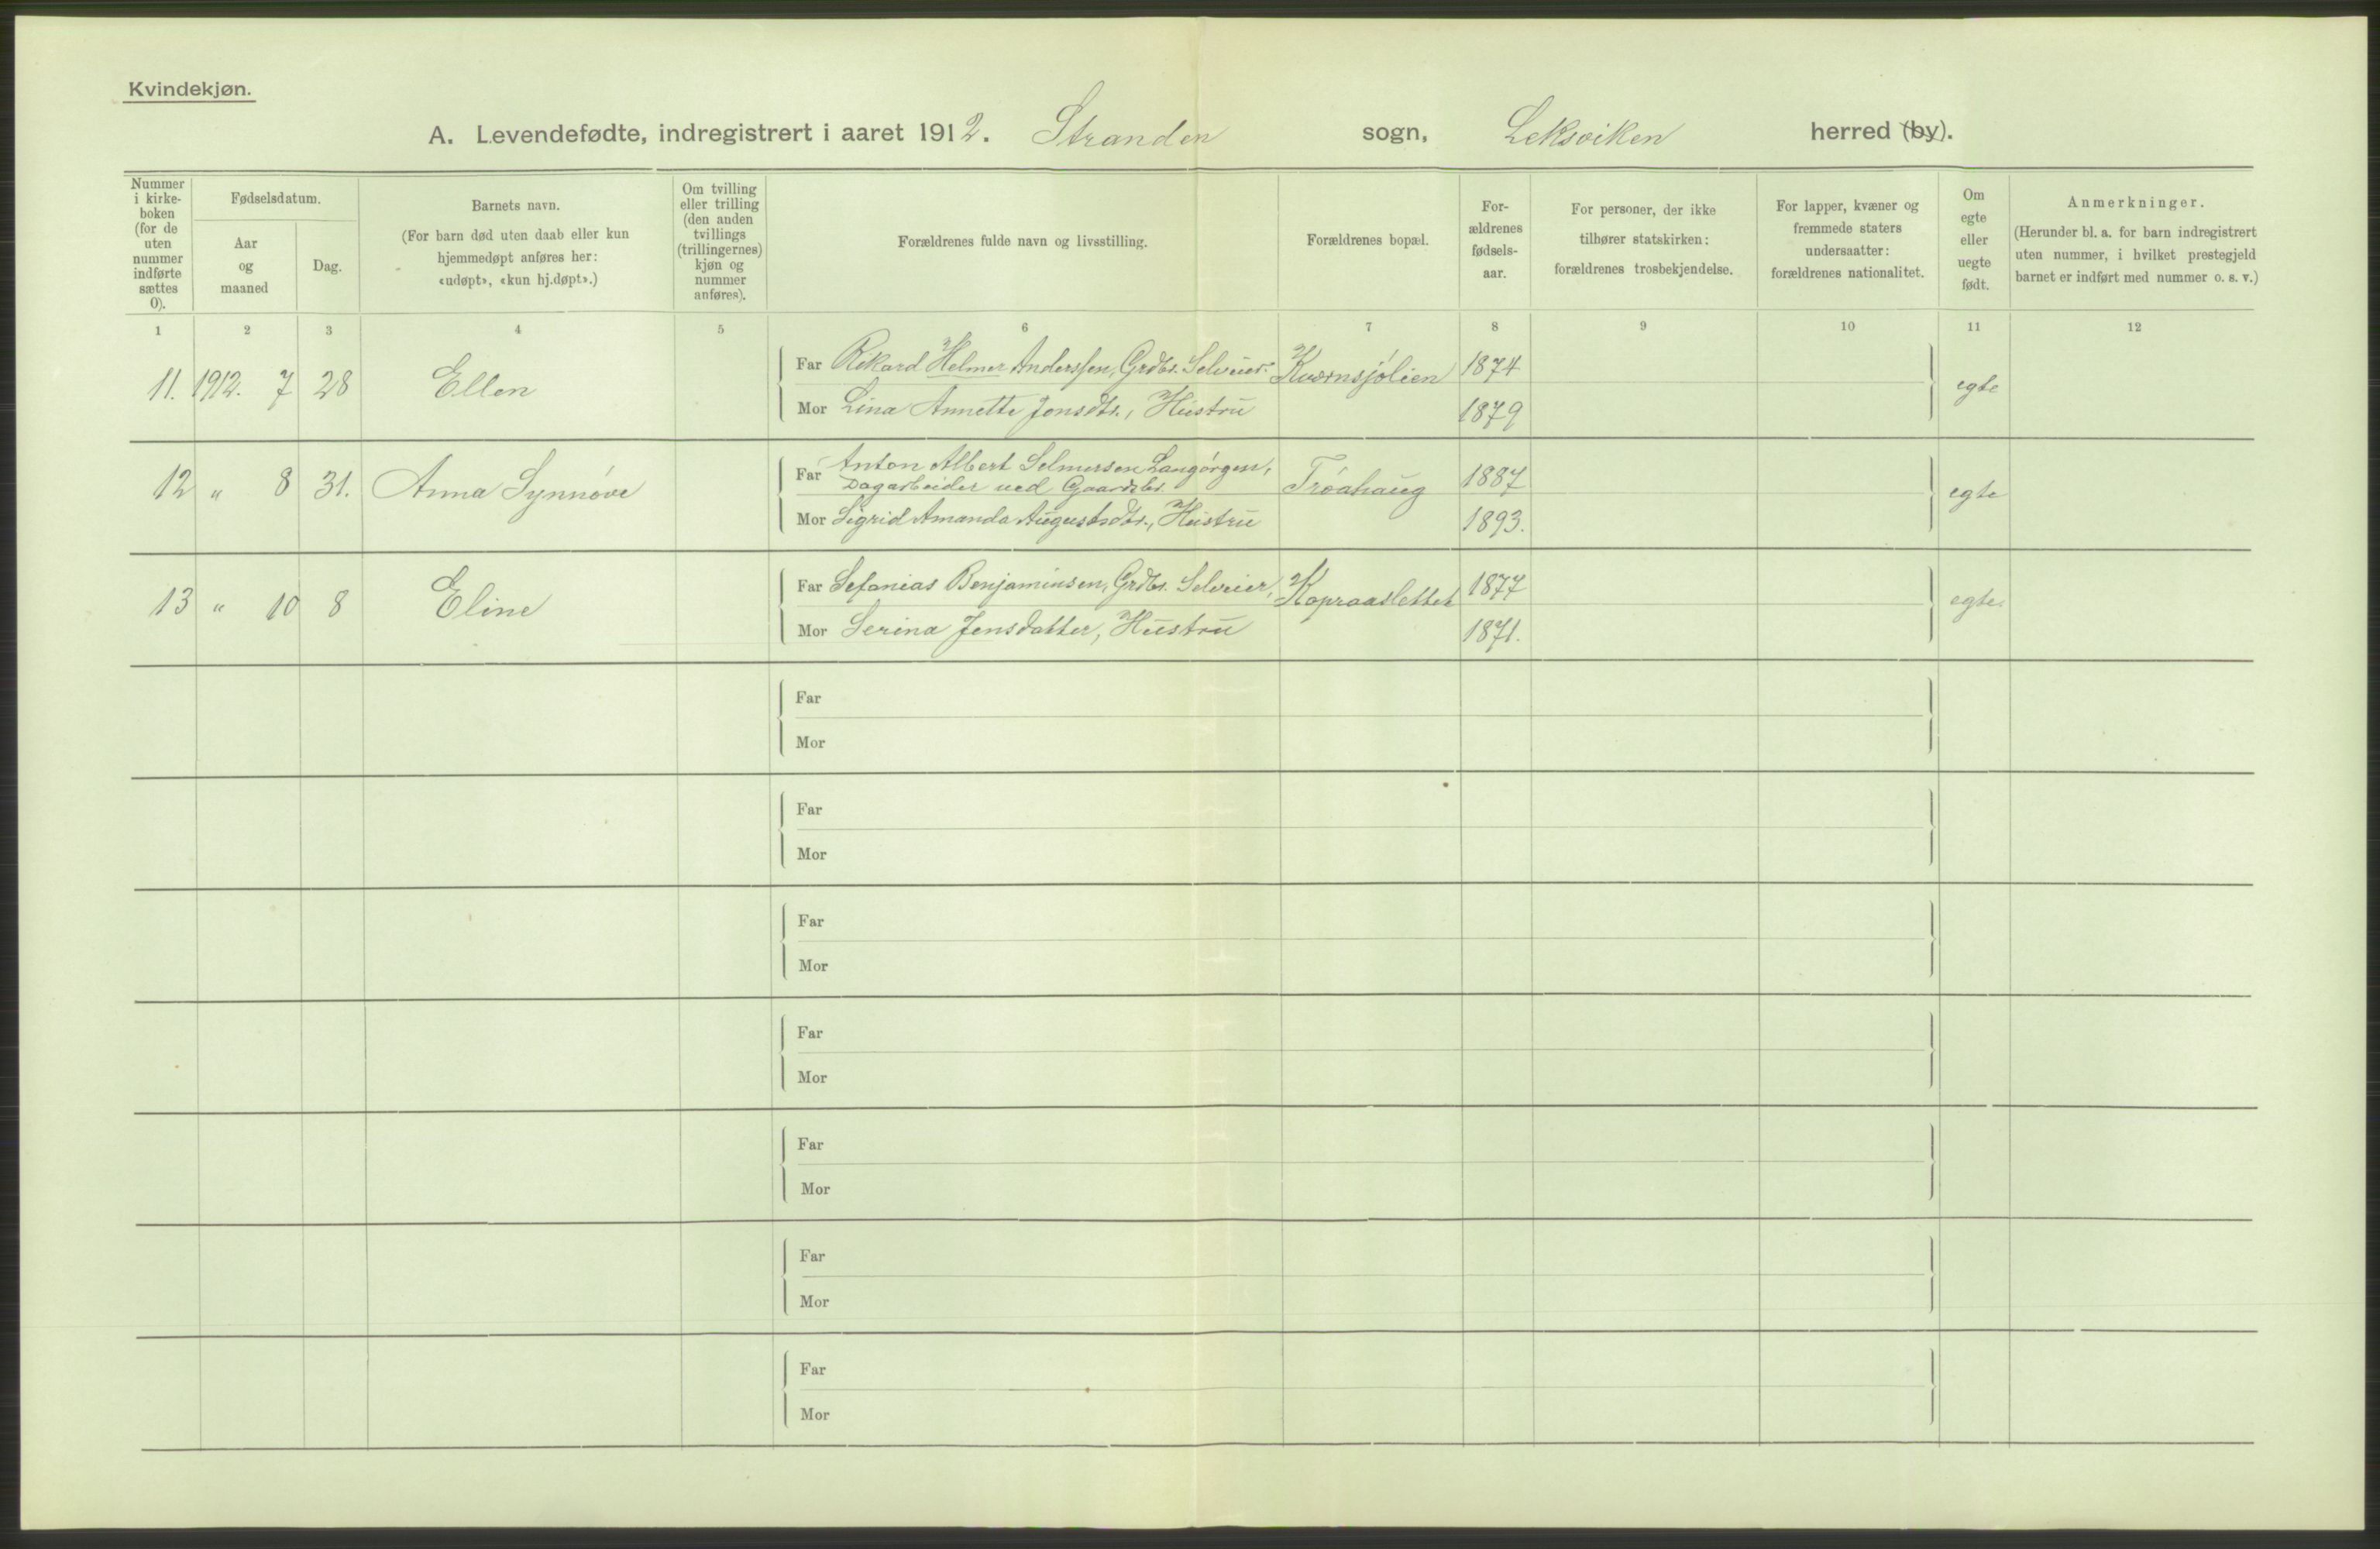 Kvindekjøn.
A. Levendefødte, indregistrert i aaret 1912. Stranden sogn, Leksviken herred (by).
Nummer i kirkeboken (for de uten nummer indførte sættes 0).
Fødselsdatum.
Aar og maaned
Dag.
Barnets navn.
(For barn død uten daab eller kun hjemmedøpt anføres her: «udøpt», «kun hj.døpt».)
Om tvilling eller trilling (den anden tvillings (trillingernes) kjøn og nummer anføres).
Forældrenes fulde navn og livsstilling.
Forældrenes bopæl.
Forældrenes fødselsaar.
For personer, der ikke tilhører statskirken: forældrenes trosbekjendelse.
For lapper, kvæner og fremmede staters undersaatter: forældrenes nationalitet.
Om egte eller uegte født.
Anmerkninger.
(Herunder bl. a. for barn indregistrert uten nummer, i hvilket prestegjeld barnet er indført med nummer o. s. v.)
1 2 3 4 5 6 7 8 9 10 11 12
11. 1912. 7 28 Ellen Far Rikard Helmer Anderssen, Grdbr. Selveier. Kvernsjølien 1874 egte
Mor Lina Annette Jonsdtr., Hustru 1879
12 " 8 31. Anna Synnøve Far Anton Albert Selmersen Langørgen,
Dagarbeider ved Gaardsbr. Trøahaug 1887 egte
Mor Sigrid Amanda Augustsdtr., Hustru 1893.
13 " 10 8 Eline Far Sefanias Benjaminsen, Grdbr. Selveier, Kopraaslettet 1877 egte
Mor Serina Jensdatter, Hustru 1871.
Far
Mor
Far
Mor
Far
Mor
Far
Mor
Far
Mor
Far
Mor
Far
Mor